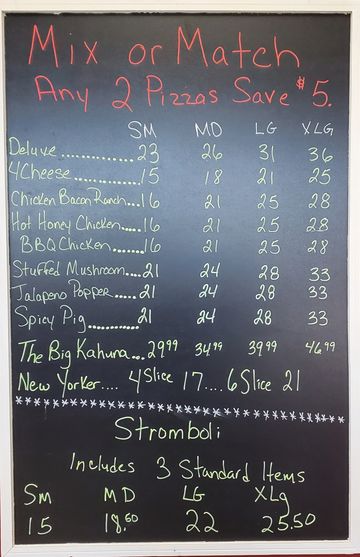 Mix or Match
Any 2 Pizzas Save $5.
SM MD LG XLG
Deluxe............ 23 26 31 36
4Cheese............ 15 18 21 25
Chicken Bacon Ranch... 16 21 25 28
Hot Honey Chicken.... 16 21 25 28
BBQ Chicken.... 16 21 25 28
Stuffed Mushroom.... 21 24 28 33
Jalapeno Popper..... 21 24 28 33
Spicy Pig......... 21 24 28 33
The Big Kahuna... 29.99 34.99 39.99 46.99
New Yorker.... 4 Slice 17.... 6 Slice 21
****************************************
Stromboli
Includes 3 Standard Items
Sm MD LG XLg
15 18.50 22 25.50